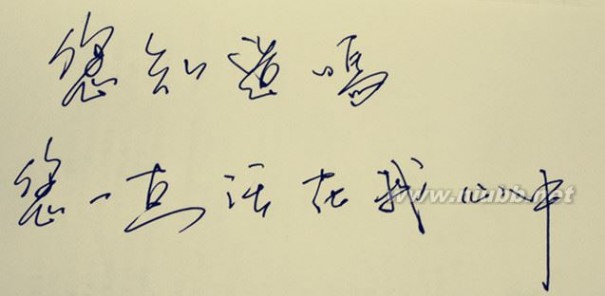 您知道嗎
您一直活在我心中
www.niubb.net